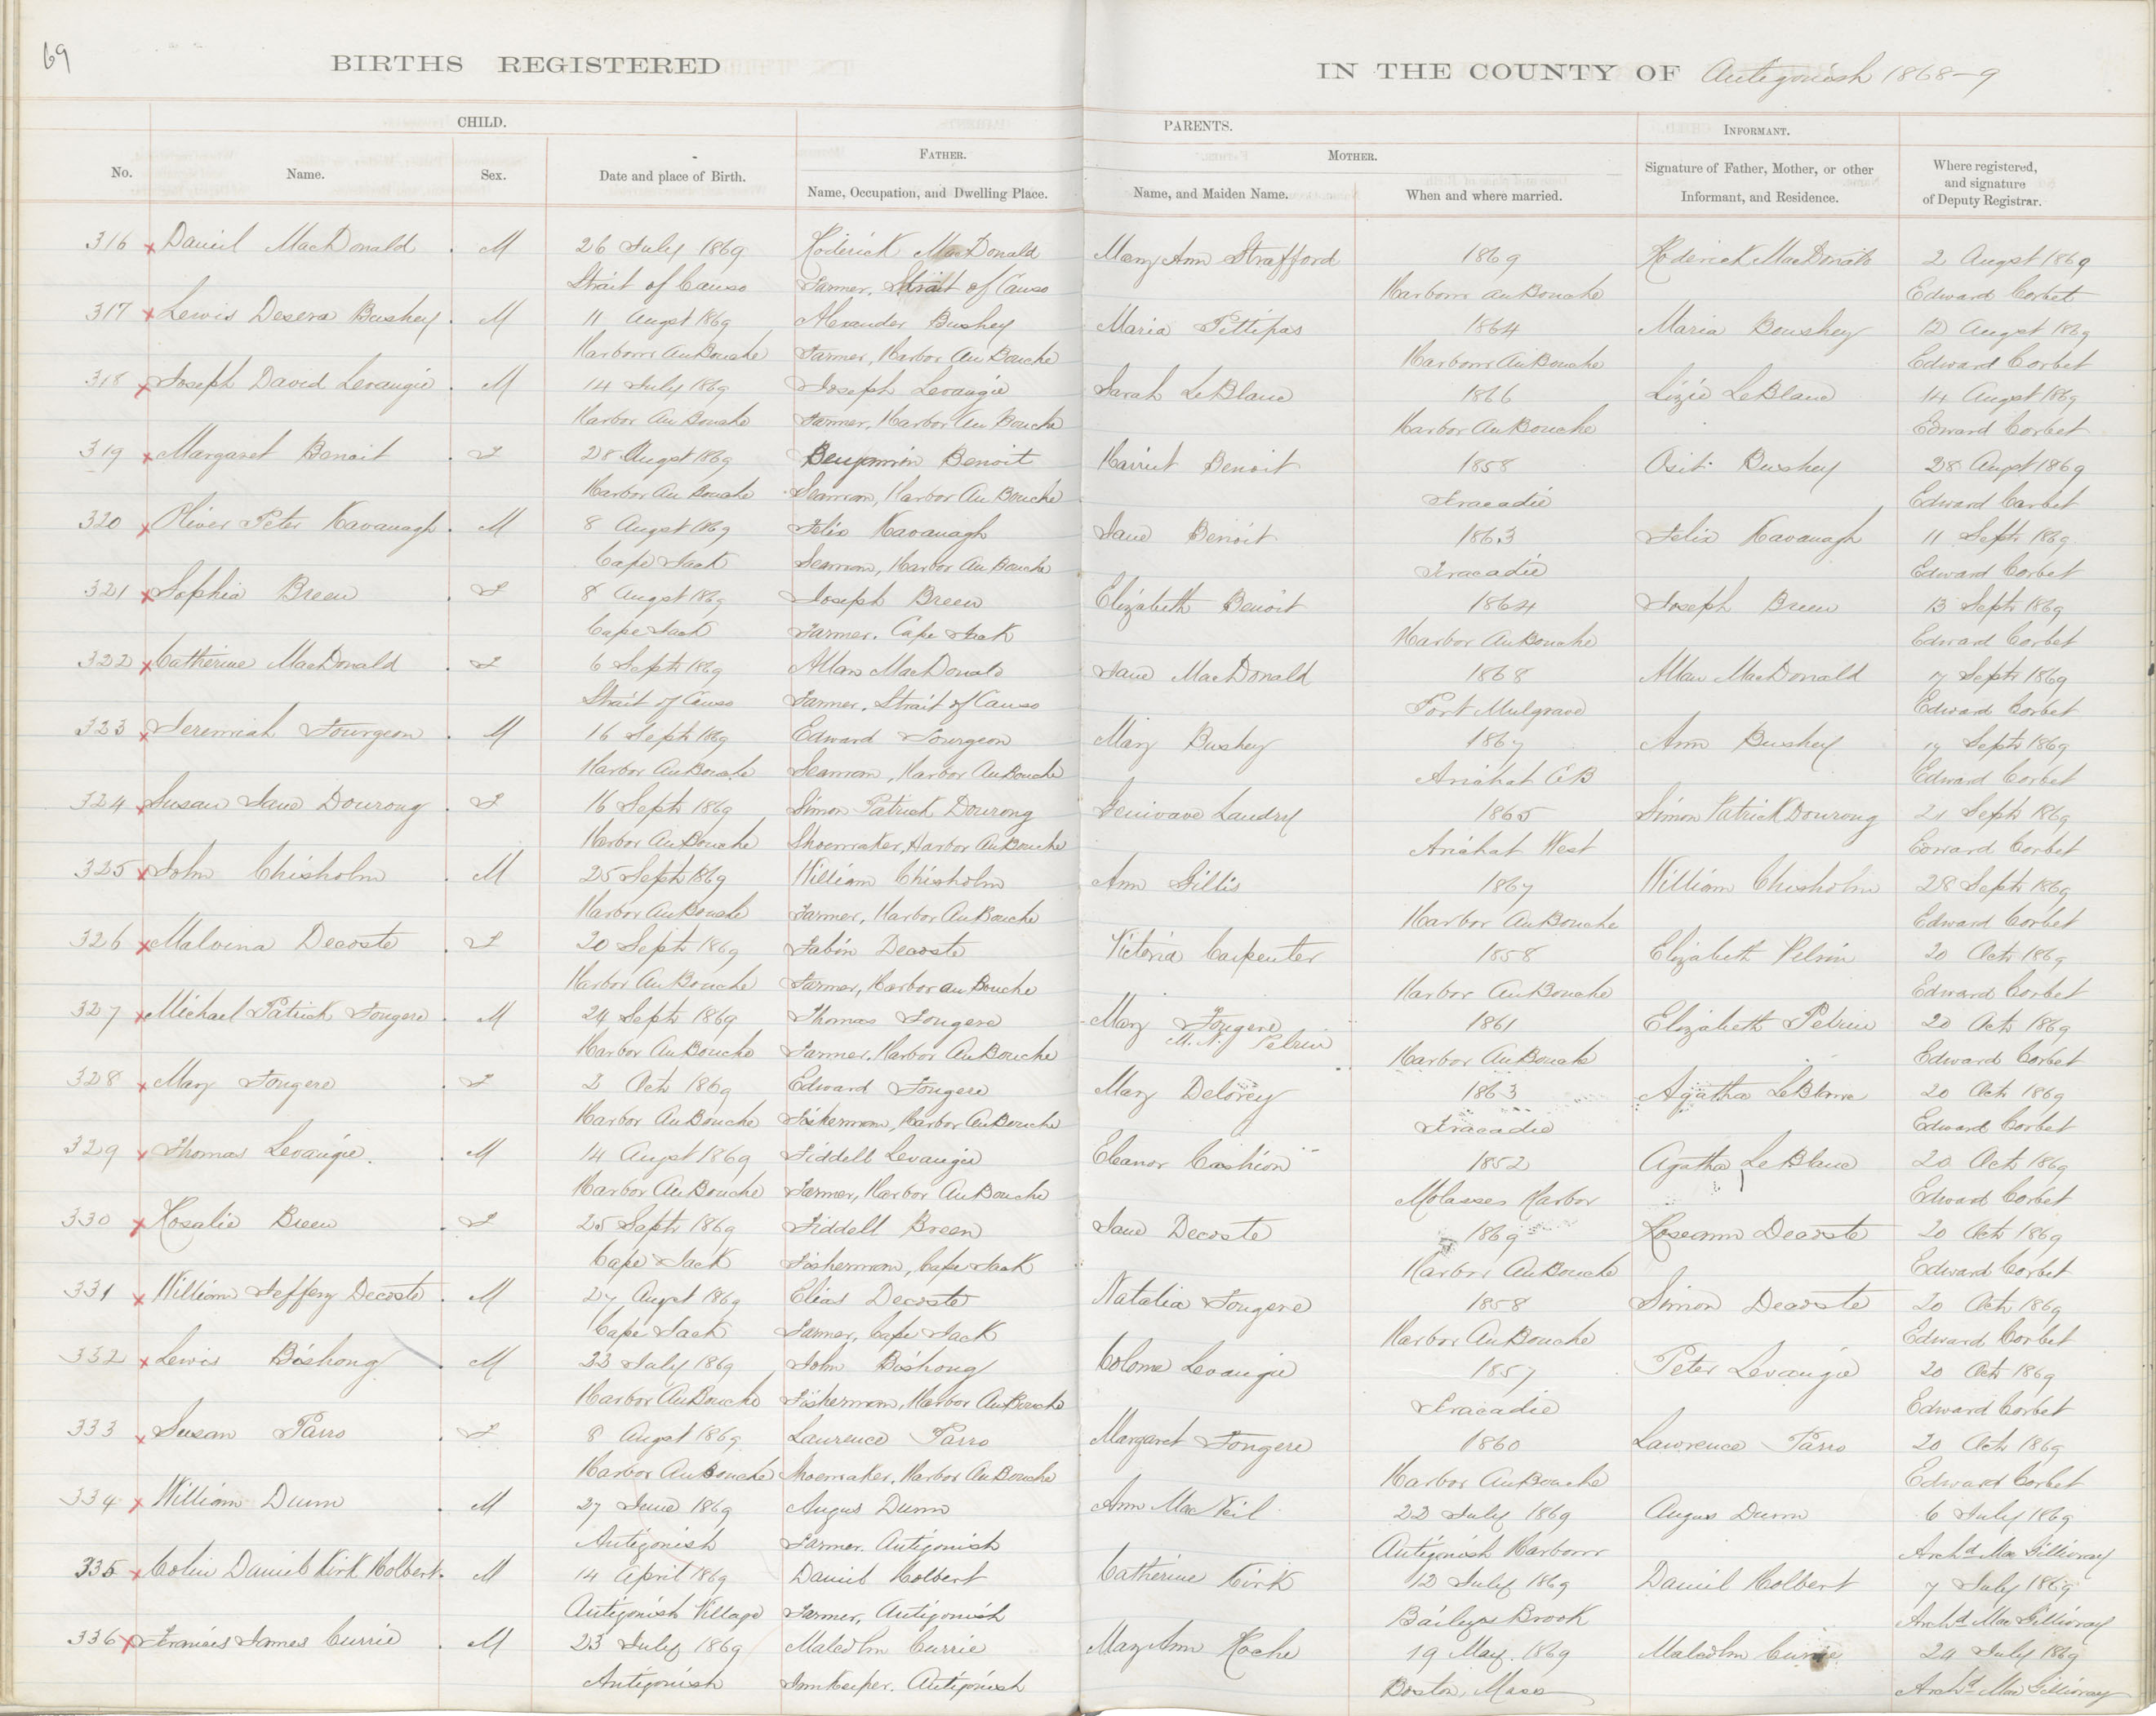 69
BIRTHS REGISTERED IN THE COUNTY OF Antigonish 1868-9
CHILD. PARENTS. INFORMANT.
FATHER. MOTHER.
No. Name. Sex. Date and place of Birth. Name, Occupation, and Dwelling Place. Name, and Maiden Name. When and where married. Signature of Father, Mother, or other Informant, and Residence. Where registered, and signature of Deputy Registrar.
316 x Daniel MacDonald . M 26 July 1869 Roderick MacDonald Mary Ann Strafford 1869 Roderick MacDonald 2 Augst 1869
Strait of Canso Farmer, Strait of Canso Harbour AuBouche Edward Corbet
317 x Lewis Desera Bushey . M 11 Augst 1869 Alexander Bushey Maria Pettipas 1864 Maria Boushey 12 Augst 1869
Harbour AuBouche Farmer, Harbor Au Bouche Harbour AuBouche Edward Corbet
318 x Joseph David Levangie . M 14 July 1869 Joseph Levangie Sarah LeBlanc 1866 Lizie LeBlanc 14 Augst 1869
Harbor Au Bouche Farmer, Harbor Au Bouche Harbor AuBouche Edward Corbet
319 x Margaret Benoit . F 28 Augst 1869 Benjamin Benoit Harriet Benoit 1858 Osit. Bushey 28 Augst 1869
Harbor Au Bouche Seaman, Harbor Au Bouche Tracadie Edward Corbet
320 x Oliver Peter Kavanagh . M 8 Augst 1869 Felix Kavanagh Jane Benoit 1863 Felix Kavanagh 11 Septr 1869
Cape Jack Seaman, Harbor Au Bouche Tracadie Edward Corbet
321 x Sophia Breen . F 8 Augst 1869 Joseph Breen Elizabeth Benoit 1864 Joseph Breen 13 Septr 1869
Cape Jack Farmer. Cape Jack Harbor AuBouche Edward Corbet
322 x Catherine MacDonald . F 6 Septr 1869 Allan MacDonald Jane MacDonald 1868 Allan MacDonald 17 Septr 1869
Strait of Canso Farmer, Strait of Canso Port Mulgrave Edward Corbet
323 x Jeremiah Fourgeon . M 16 Septr 1869 Edward Fourgeon Mary Bushey 1867 Ann Bushey 17 Septr 1869
Harbor AuBouche Seaman, Harbor AuBouche Arichat C B Edward Corbet
324 x Susan Jane Dourong . F 16 Septr 1869 Simon Patrick Dourong Genivave Landry 1865 Simon Patrick Dourong 21 Septr 1869
Harbor AuBouche Shoemaker, Harbor AuBouche Arichat West Edward Corbet
325 x John Chisholm . M 25 Septr 1869 William Chisholm Ann Gillis 1867 William Chisholm 28 Septr 1869
Harbor AuBouche Farmer, Harbor AuBouche Harbor AuBouche Edward Corbet
326 x Malvina Decoste . F 20 Septr 1869 Fabin Decoste Victoria Carpenter 1858 Elizabeth Pelrin 20 Octr 1869
Harbor AuBouche Farmer, Harbor au Bouche Harbor AuBouche Edward Corbet
327 x Michael Patrick Fougere . M 24 Septr 1869 Thomas Fougere Mary Fougere 1861 Elizabeth Pelrin 20 Octr 1869
M. N. Pelrin
Harbor AuBouche Farmer. Harbor AuBouche Harbor AuBouche Edward Corbet
328 x Mary Fougere . F 2 Octr 1869 Edward Fougere Mary Delorey 1863 Agatha LeBlanc 20 Octr 1869
Harbor AuBouche Fisherman, Harbor AuBouche Tracadie Edward Corbet
329 x Thomas Levangie . M 14 Augst 1869 Fiddell Levangie Eleanor Cashion 1852 Agatha LeBlanc 20 Octr 1869
Harbor AuBouche Farmer, Harbor AuBouche Molasses Harbor Edward Corbet
330 x Rosalie Breen . F 25 Septr 1869 Fiddell Breen Jane Decoste 1869 Roseann Decoste 20 Octr 1869
Cape Jack Fisherman, Cape Jack Harbor AuBouche Edward Corbet
331 x William Jeffery Decoste . M 27 Augst 1869 Elias Decoste Natalia Fougere 1858 Simon Decoste 20 Octr 1869
Cape Jack Farmer, Cape Jack Harbor AuBouche Edward Corbet
332 x Lewis Bishong . M 22 July 1869 John Bishong Colome Levangie 1857 Peter Levangie 20 Octr 1869
Harbor AuBouche Fisherman, Harbor AuBouche Tracadie Edward Corbet
333 x Susan Parro . F 8 Augst 1869 Laurence Parro Margaret Fougere 1860 Lawrence Parro 20 Octr 1869
Harbor AuBouche Shoemaker, Harbor AuBouche Harbor AuBouche Edward Corbet
334 x William Dunn . M 27 June 1869 Angus Dunn Ann MacNeil 22 July 1869 Angus Dunn 6 July 1869
Antigonish Farmer. Antigonish Antigonish Harbour Archd MacGillivray
335 x Colin Daniel Kirk Holbert . M 14 April 1869 Daniel Holbert Catherine Kirk 12 July 1869 Daniel Holbert 7 July 1869
Antigonish Village Farmer, Antigonish Baileys Brook Archd MacGillivray
336 x Francis James Currie . M 23 July 1869 Malcolm Currie Mary Ann Roche 19 May 1869 Malcolm Currie 24 July 1869
Antigonish Innkeeper. Antigonish Boston, Mass Archd MacGillivray